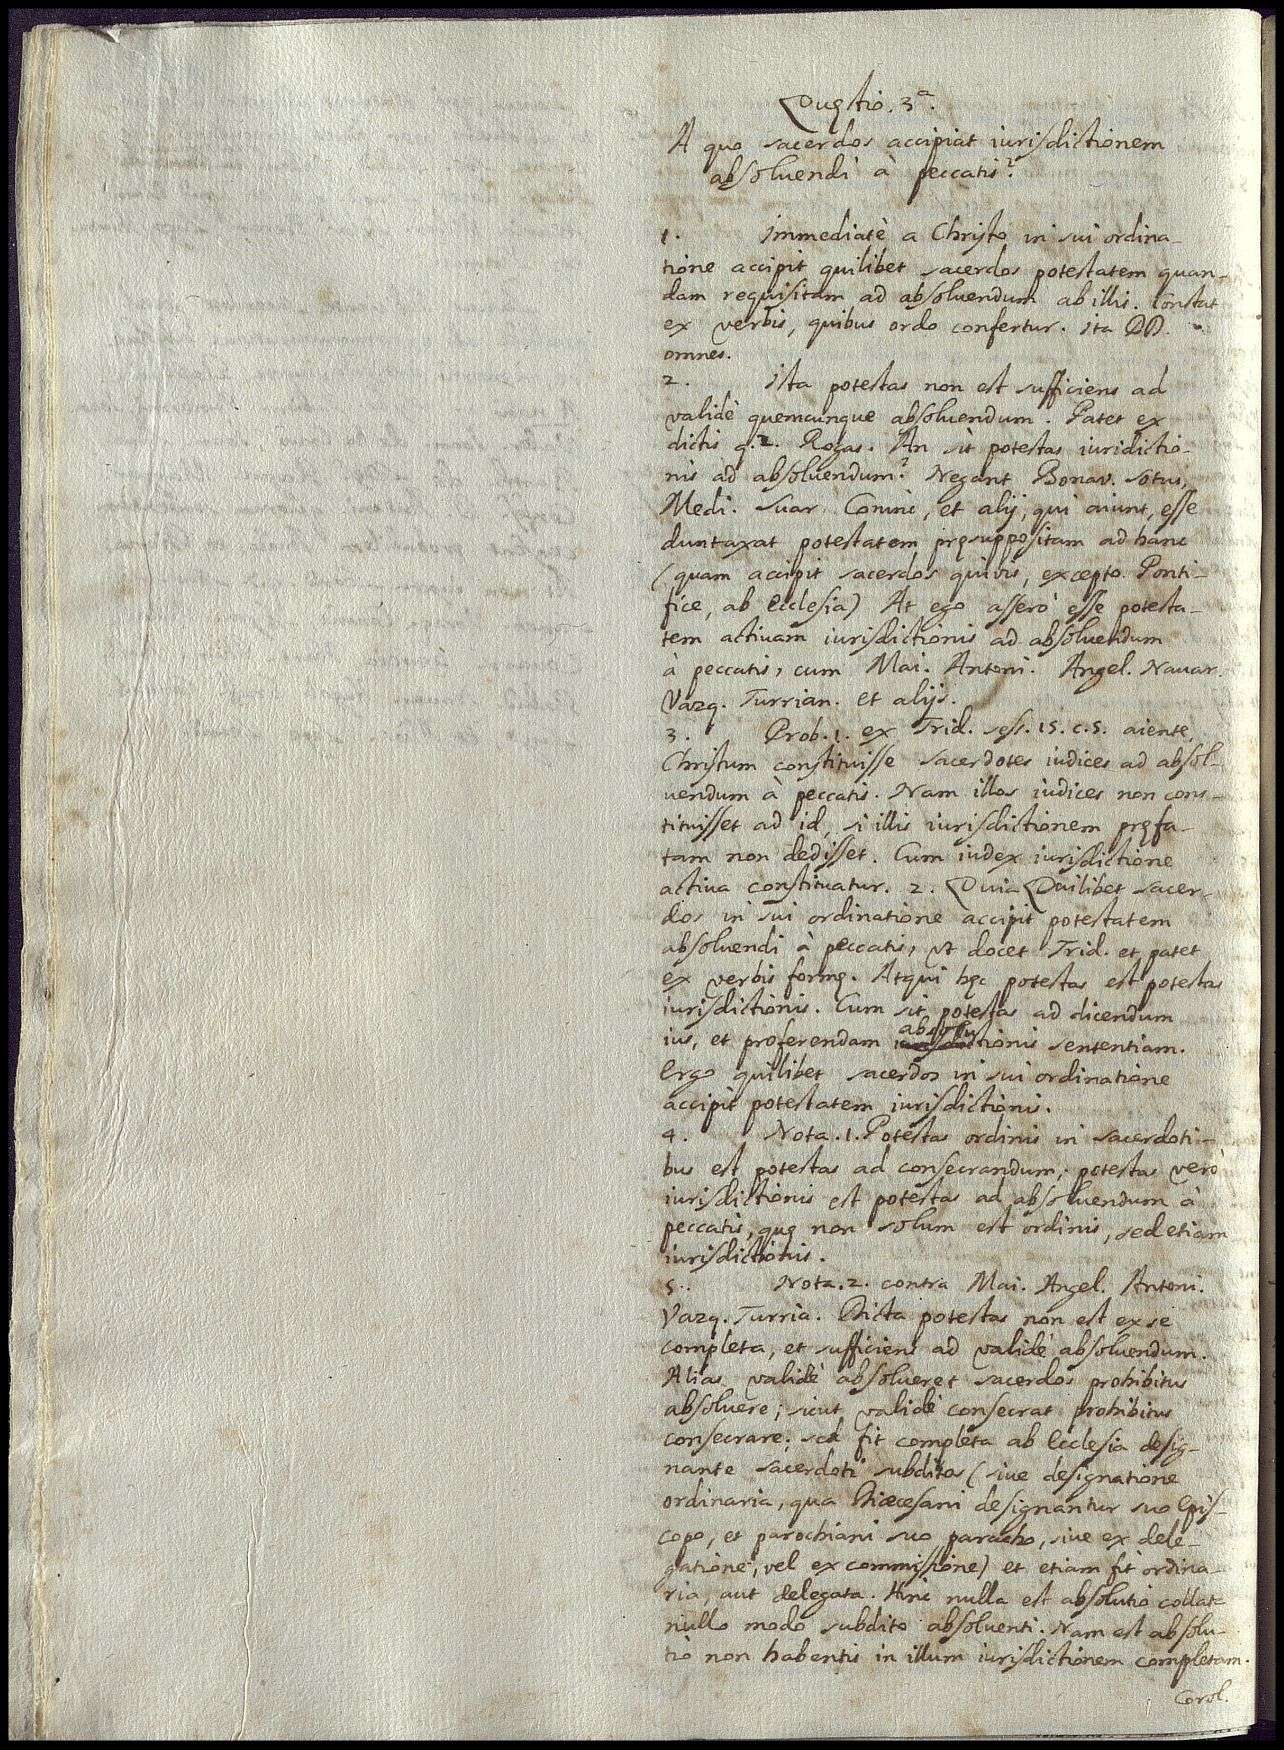 Quęstio. 3ª.
A quo sacerdos accipiat iurisdictionem
absoluendi à peccatis?
1. Immediatè a Christo in sui ordina-
tione accipit quilibet sacerdos potestatem quan-
dam requisitam ad absoluendum ab illis. Constat
ex verbis, quibus ordo confertur. Ita DD.
omnes.
2. Ista potestas non est sufficiens ad
validè quemcunque absoluendum. Patet ex
dictis q. 2. Rogas. An sit potestas iuridictio-
nis ad absoluendum? Negant Bonav. Sotus,
Medi. Suar. Coninc, et alij, qui aiunt, esse
duntaxat potestatem pręsuppositam ad hanc
(quam accipit sacerdos quivis, excepto Ponti-
fice, ab Ecclesia) At ego assero esse potesta-
tem actiuam iurisdictionis ad absoluendum
à peccatis, cum Mai. Antoni. Angel. Nauar.
Vazq. Turrian. et alijs.
3. Prob. 1. ex Trid. sess. 15. c. 5. aiente,
Christum constituisse sacerdotes iudices ad absol-
uendum à peccatis. Nam illos iudices non cons-
tituisset ad id, si illis iurisdictionem pręfa-
tam non dedisset. Cum iudex iurisdictione
actiua constituatur. 2. Quia Quilibet sacer-
dos in sui ordinatione accipit potestatem
absoluendi à peccatis, vt docet Trid. et patet
ex verbis formę. Atqui hęc potestas est potestas
iurisdictionis. Cum sit potestas ad dicendum
ius, et proferendam absolutionis sententiam.
Ergo quilibet sacerdos in sui ordinatione
accipit potestatem iurisdictionis.
4. Nota. 1. Potestas ordinis in sacerdoti-
bus est potestas ad consecrandum; potestas verò
iurisdictionis est potestas ad absoluendum à
peccatis, quę non solum est ordinis, sed etiam
iurisdictionis.
5. Nota. 2. contra Mai. Angel. Antoni.
Vazq. Turria. Dicta potestas non est ex se
completa, et sufficiens ad validè absoluendum.
Alias validè absolueret sacerdos prohibitus
absoluere; sicut validè consecrat prohibitus
consecrare; sed fit completa ab Ecclesia desig-
nante sacerdoti subditos (siue designatione
ordinaria, qua Diœcesani designantur suo Epis-
copo, et parochiani suo parocho, siue ex dele-
gatione, vel ex commissione) et etiam fit ordina-
ria, aut delegata. Hinc nulla est absolutio collata
nullo modo subdito absoluenti. Nam est absolu-
tio non habentis in illum iurisdictionem completam.
Corol.